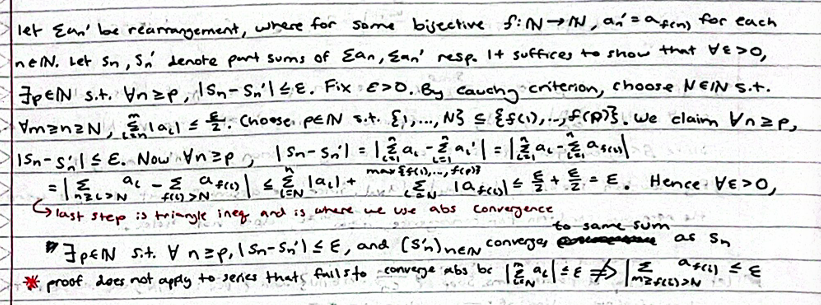 let Σan' be rearrangement, where for some bijective f: ℕ→ℕ, an' = af(n) for each
n∈ℕ. Let Sn, Sn' denote part sums of Σan, Σan' resp. It suffices to show that ∀ε>0,
∃p∈ℕ s.t. ∀n≥p, |Sn-Sn'| ≤ ε. Fix ε>0. By cauchy criterion, choose N∈ℕ s.t.
∀m≥n≥N, Σ_{i=n}^{m} |ai| ≤ ε/2. Choose p∈ℕ s.t. {1,...,N} ⊆ {f(1),...,f(p)}. We claim ∀n≥p,
|Sn-Sn'| ≤ ε. Now ∀n≥p, |Sn-Sn'| = |Σ_{i=1}^{n} ai - Σ_{i=1}^{n} ai'| = |Σ_{i=1}^{n} ai - Σ_{i=1}^{n} af(i)|
= |Σ_{n≥i>N} ai - Σ_{f(i)>N} af(i)| ≤ Σ_{i=N}^{n} |ai| + Σ_{i=N}^{max{f(1),...,f(p)}} |af(i)| ≤ ε/2 + ε/2 = ε. Hence ∀ε>0,
↳ last step is triangle ineq and is where we use abs convergence
∃p∈ℕ s.t. ∀n≥p, |Sn-Sn'| ≤ ε, and (S'n)n∈ℕ converges to same sum as Sn
* proof does not apply to series that fails to converge abs bc |Σ_{i=N}^{n} ai| ≤ ε ⇏ |Σ_{m≥f(i)>N} af(i)| ≤ ε